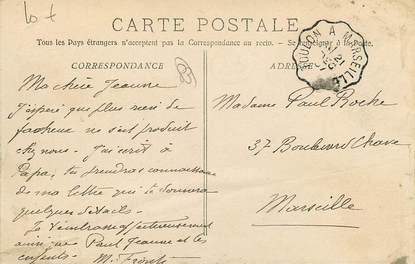 CARTE POSTALE
Tous les Pays étrangers n'acceptent pas la Correspondance au recto. - Se renseigner à la Poste.
CORRESPONDANCE
TOULON A MARSEILLE
Ma chère Jeanne
J'espère que plus rien de
facheux ne s'est produit
chez nous. J'ai écrit à
Papa, tu prendras connaissance
de ma lettre qui te donnera
quelques détails.
Je t'embrasse affectueusement
ainsi que Paul Jeanne et les
enfants.
Madame Paul Roche
37 Boulevard Chave
Marseille